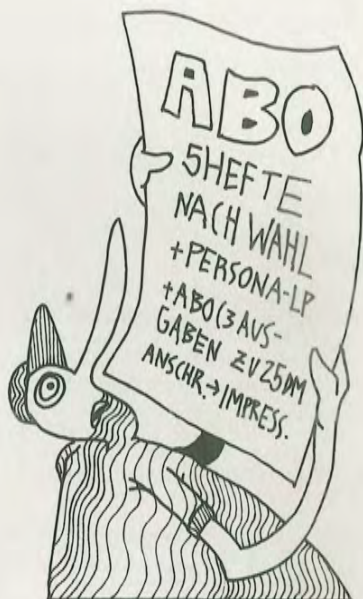 ABO
5HEFTE
NACH WAHL
+PERSONA-LP
+ABO(3 AUS-
GABEN ZU 25DM
ANSCHR.→IMPRESS.